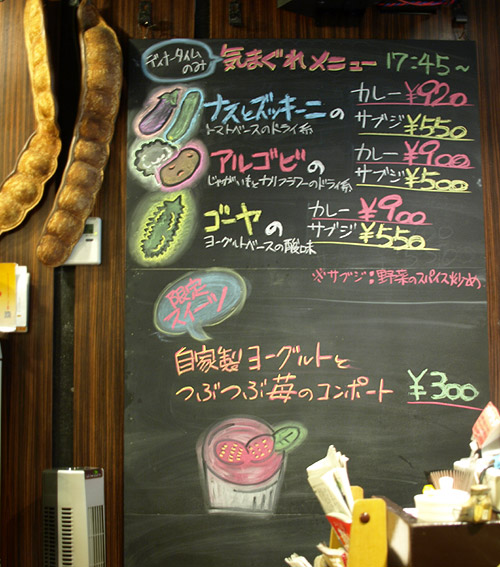 ディナータイム
のみ
気まぐれメニュー 17:45~
ナスとズッキーニの
トマトベースのドライ系
カレー ¥920
サブジ ¥550
アルゴビの
じゃがいもとカリフラワーのドライ系
カレー ¥900
サブジ ¥500
ゴーヤの
ヨーグルトベースの酸味
カレー ¥900
サブジ ¥550
※サブジ:野菜のスパイス炒め
限定
スイーツ
自家製ヨーグルトと
つぶつぶ苺のコンポート ¥300